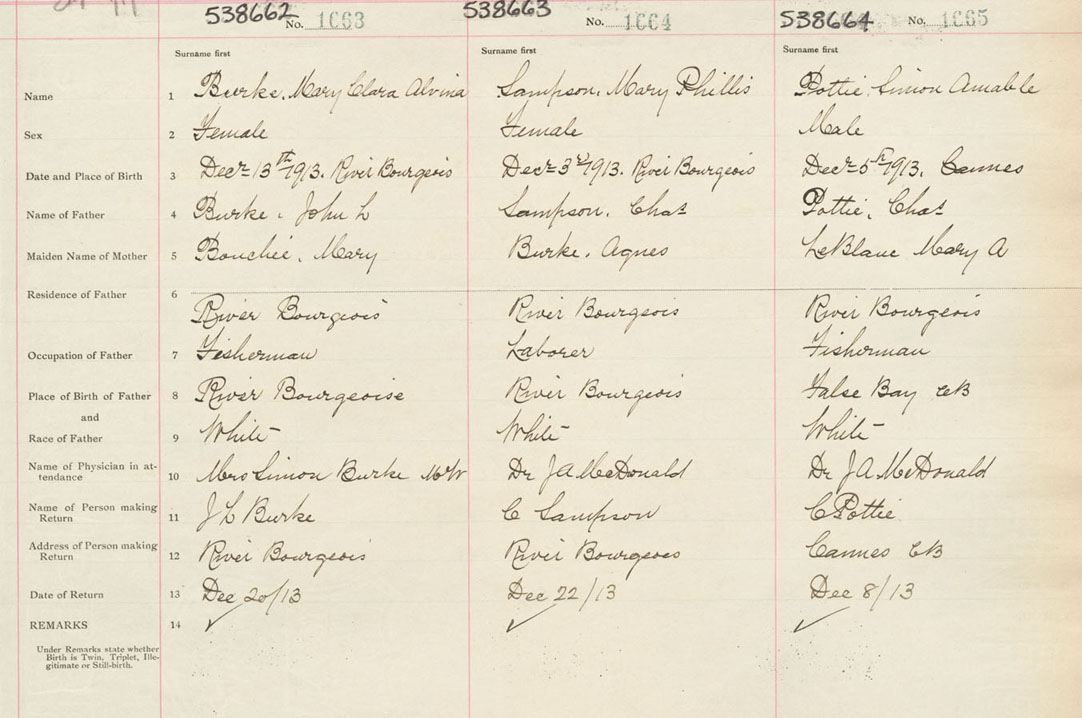 538662 No. 1663 538663 No. 1664 538664 No. 1665
Surname first Surname first Surname first
Name 1 Burke, Mary Clara Alvina Sampson, Mary Phillis Pottie, Simon Amable
Sex 2 Female Female Male
Date and Place of Birth 3 Decr 13th 1913. River Bourgeois Decr 3rd 1913. River Bourgeois Decr 5th 1913. Cannes
Name of Father 4 Burke, John L Sampson, Chas Pottie, Chas
Maiden Name of Mother 5 Bouchie, Mary Burke, Agnes LeBlanc Mary A
Residence of Father 6
River Bourgeois River Bourgeois River Bourgeois
Occupation of Father 7 Fisherman Laborer Fisherman
Place of Birth of Father 8 River Bourgeoise River Bourgeois False Bay CB
and
Race of Father 9 White White White
Name of Physician in at-
tendance 10 Mrs Simon Burke MW Dr J A McDonald Dr J A McDonald
Name of Person making
Return 11 J L Burke C Sampson C Pottie
Address of Person making
Return 12 River Bourgeois River Bourgeois Cannes CB
Date of Return 13 Dec 20/13 Dec 22/13 Dec 8/13
REMARKS 14
Under Remarks state whether
Birth is Twin, Triplet, Ille-
gitimate or Still-birth.